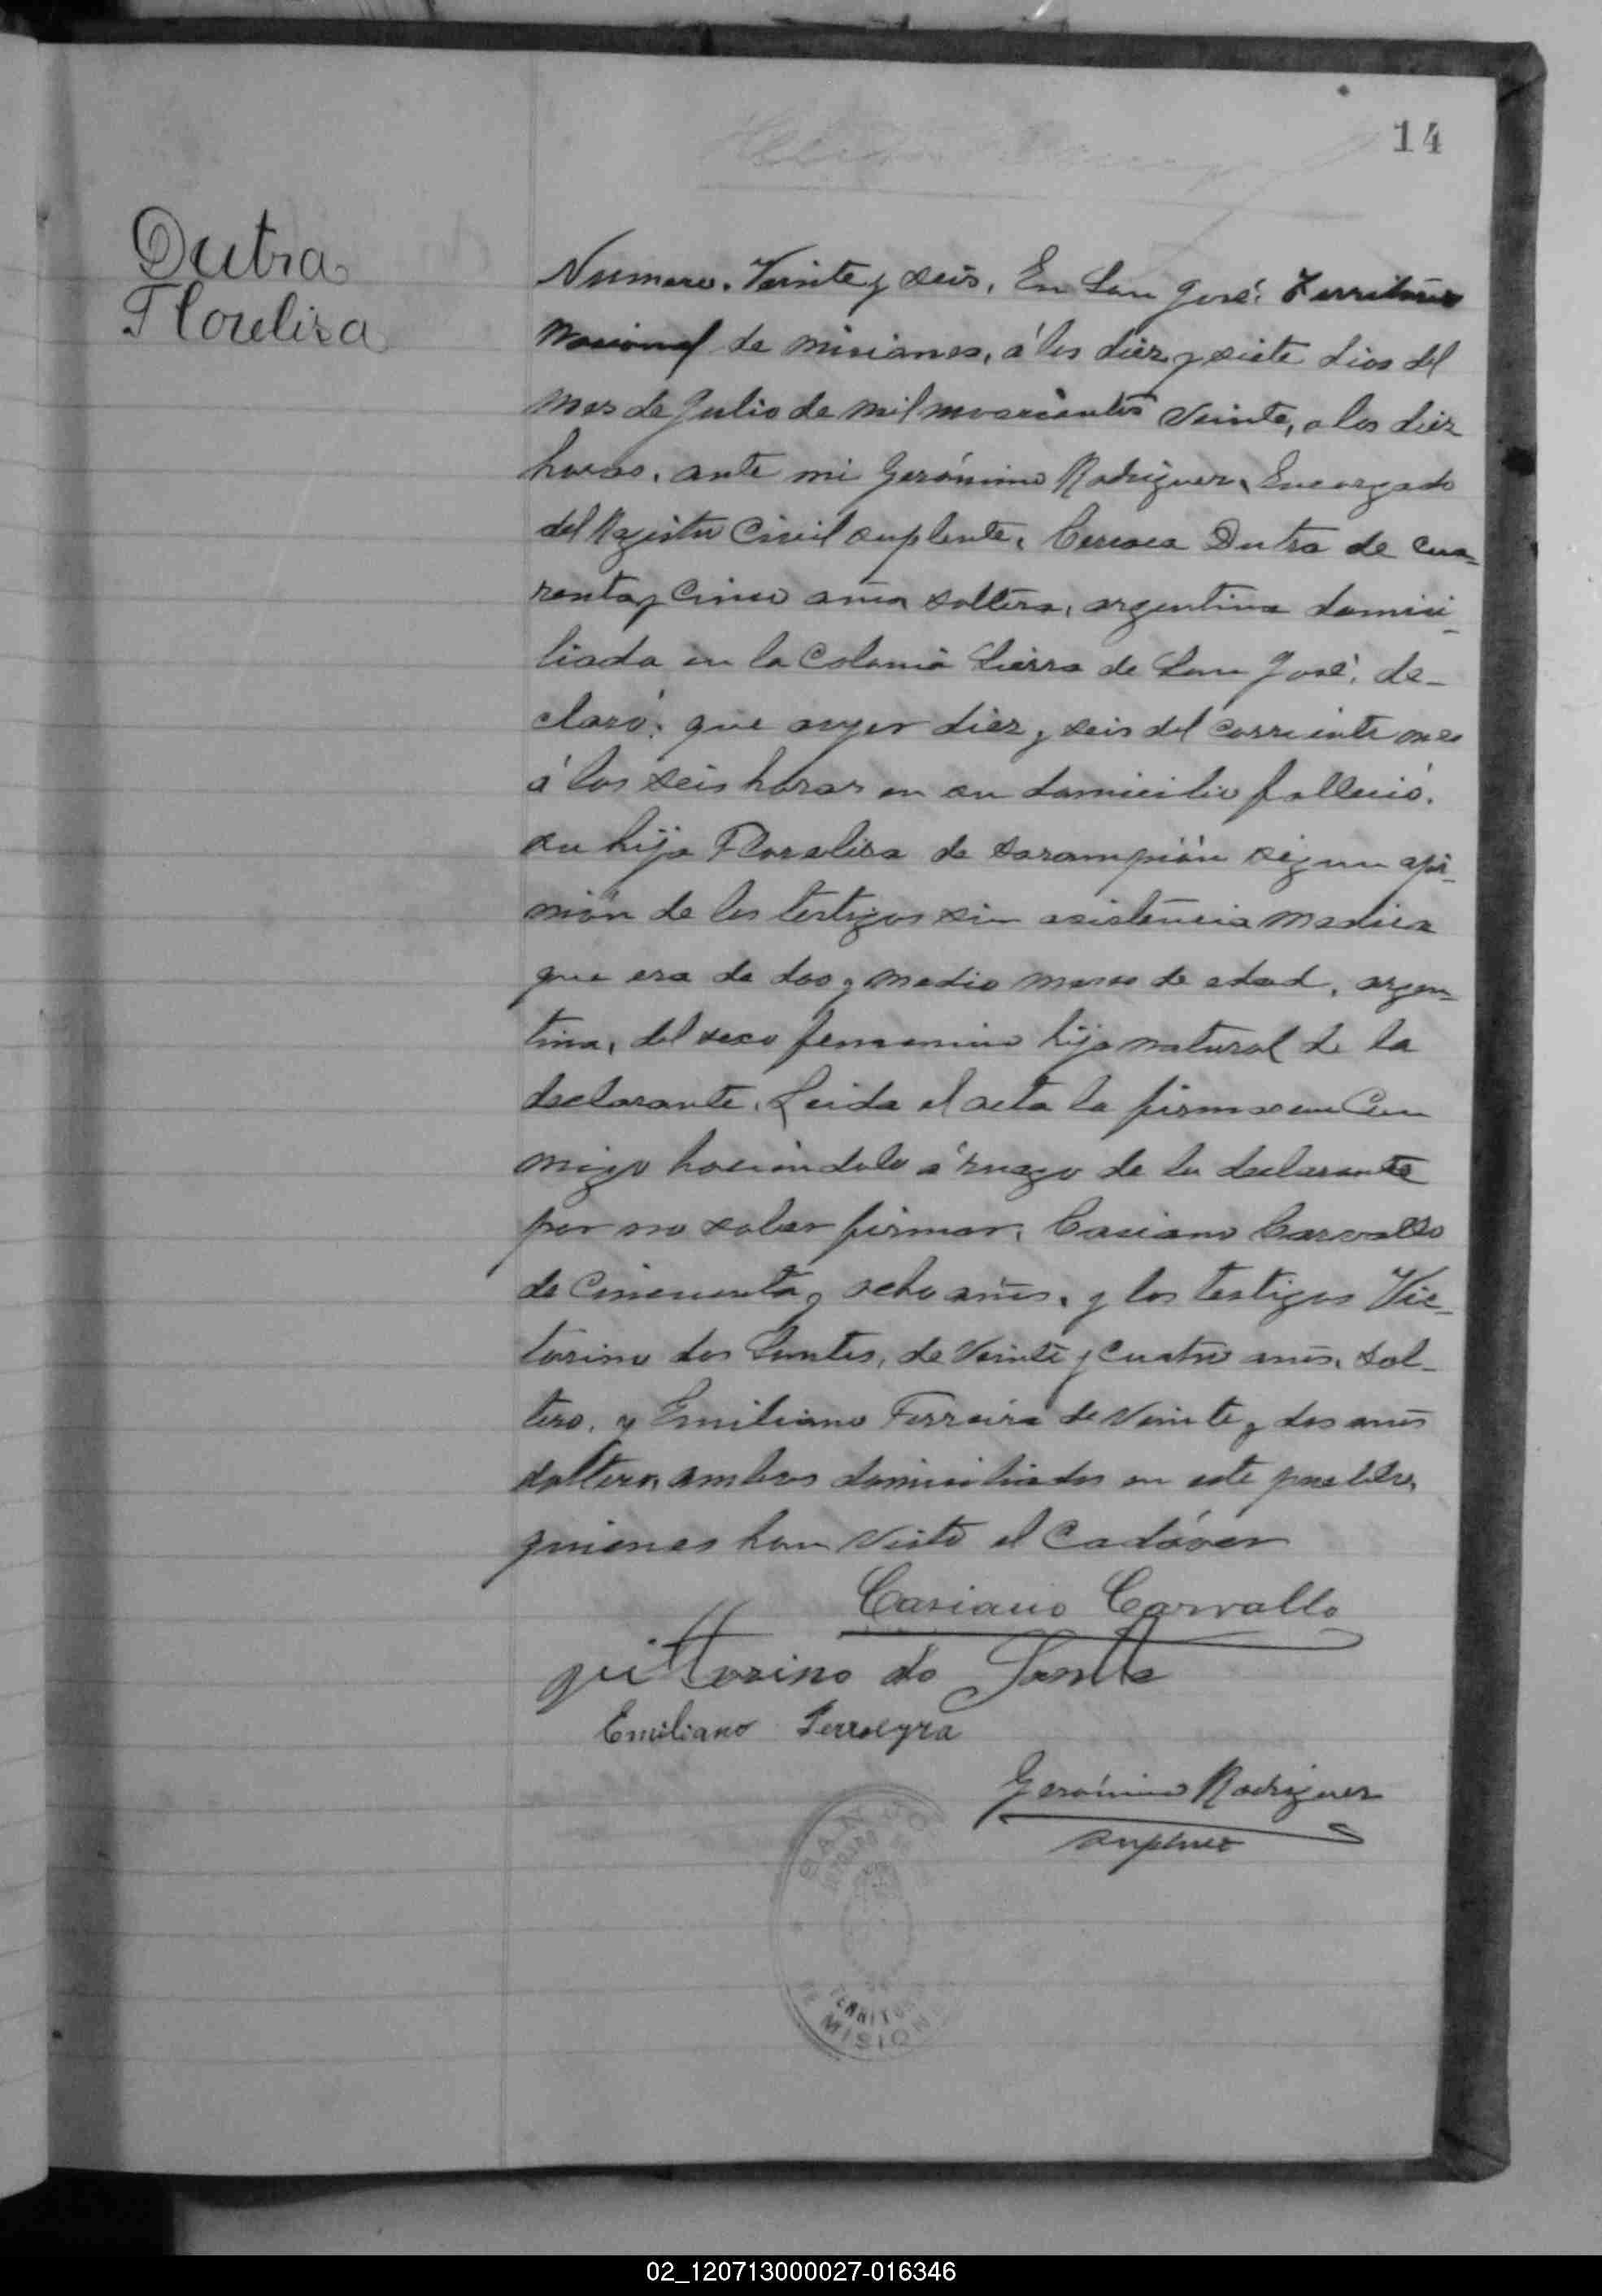 14
Dutra
Florelisa
Numero. Veinte y seis. En San José. Territorio
Nacional de Misiones, á los diez y siete dias del
mes de Julio de mil novecientos veinte, a las diez
horas. ante mi Gerónimo Rodriguez, Encargado
del Registro Civil suplente, Dutra de cua-
renta y cinco años soltera, argentina domici-
liada en la Colonia Sierra de San José, de-
claró: que ayer diez y seis del corriente mes
á las seis horas en su domicilio falleció.
su hija Florelisa de sarampión segun opi-
nión de los testigos sin asistencia medica
que era de dos y medio meses de edad, argen-
tina, del sexo femenino hija natural de la
declarante. Leida el acta la firmaron con
migo haciendolo á ruego de la declarante
por no saber firmar, Casiano Carvallo
de cincuenta y ocho años, y los testigos Vic-
torino dos Santos, de veinte y cuatro anos, sol-
tero, y Emiliano Ferreira de veinte y dos anos
soltero, ambos domiciliados en este pueblo,
quienes han visto el Cadáver
Casiano Carvallo
Emiliano Ferreyra
Gerónimo Rodriguez
suplente
SAN
TERRITO
DE MISION
02_120713000027-016346